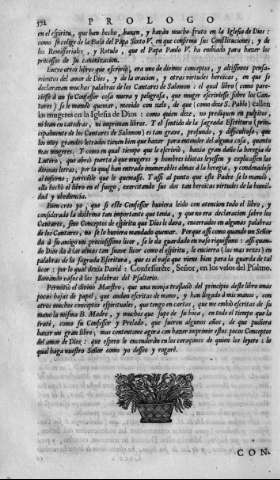 572 PROLOGO
en el espiritu, que han hecho, hazen, y haràn mucho fruto en la Iglesia de Dios:
como se colige de la Bula del Papa Sixto V. en que confirma sus Constituciones, y de
los Remissoriales, y Rotulo, que el Papa Paulo V. ha embiado para hazer los
processos de su canonizacion.
Entre otros libros que escriviò, era uno de divinos conceptos, y altissimos pensa-
mientos del amor de Dios, y de la oracion, y otras virtudes heroicas, en que se
declaravan muchas palabras de los Cantares de Salomon: el qual libro (como pare-
ciesse à un su Confessor cosa nueva y peligrosa, que muger escriviesse sobre los Can-
tares) se le mandò quemar, movido con zelo, de que (como dize S. Pablo) callen
las mugeres en la Iglesia de Dios: como quien dize, no prediquen en pulpitos,
ni lean en catedras, ni impriman libros. Y el sentido de la sagrada Escritura (prin-
cipalmente de los Cantares de Salomon) es tan grave, profundo, y dificultoso, que
los muy grandes letrados tienen bien que hazer para entender del alguna cosa, quanto
mas mugeres. Y como en aquel tiempo que le escriviò, hazia gran daño la heregia de
Lutero, que abriò puerta à que mugeres y hombres idiotas leyessen y explicassen las
divinas letras, por la qual han entrado innumerables almas à la heregia, y condenadose
al infierno, pareciòle que le quemasse. Y assi al punto que este Padre se lo mandò,
ella hechò el libro en el fuego, exercitando sus dos tan heroicas virtudes de la humil-
dad y obediencia.
Bien creo yo, que si este Confessor huviera leido con atencion todo el libro, y
considerada la dotrina tan importante que tenia, y que no era declaracion sobre los
Cantares, sino Conceptos de espiritu que Dios le dava, encerrados en algunas palabras
de los Cantares, no se le huviera mandado quemar. Porque assi como quando un Señor
dà à su amigo un preciosissimo licor, se le dà guardado en vaso riquissimo: assi quan-
do Dios dà à las almas tan suave licor como el espiritu, le encierra (las mas vezes) en
palabras de la sagrada Escritura, que es el vaso que viene bien para la guarda de tal
licor: por lo qual dezia David: Confessaréte, Señor, en los vasos del Psalmo,
llamando vasos à las palabras del Psalterio.
Permitiò el divino Maestro, que una monja trasladò del principio deste libro unas
pocas hojas de papel, que andan escritas de mano, y han llegado à mis manos, con
otros muchos conceptos espirituales, que tengo en cartas, que me embiò escritas de su
mano la misma B. Madre, y muchos que supe de su boca, en todo el tiempo que la
tratè, como su Confessor y Prelado, que fueron algunos años, de que pudiera
hazer un gran libro, mas contentéme agora con hazer imprimir estos pocos Conceptos
del amor de Dios: que espero le encenderàn en los coraçones de quien los leyere: lo
qual haga nuestro Señor como yo desseo y rogaré.
CON-